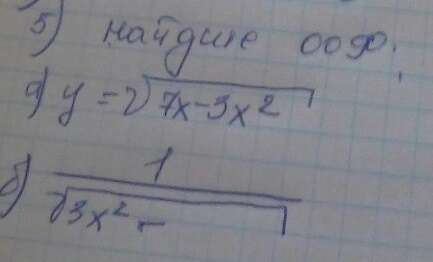 5) найдите ООФ:
а) y = 2√7x-3x²
б) 1
√3x² -